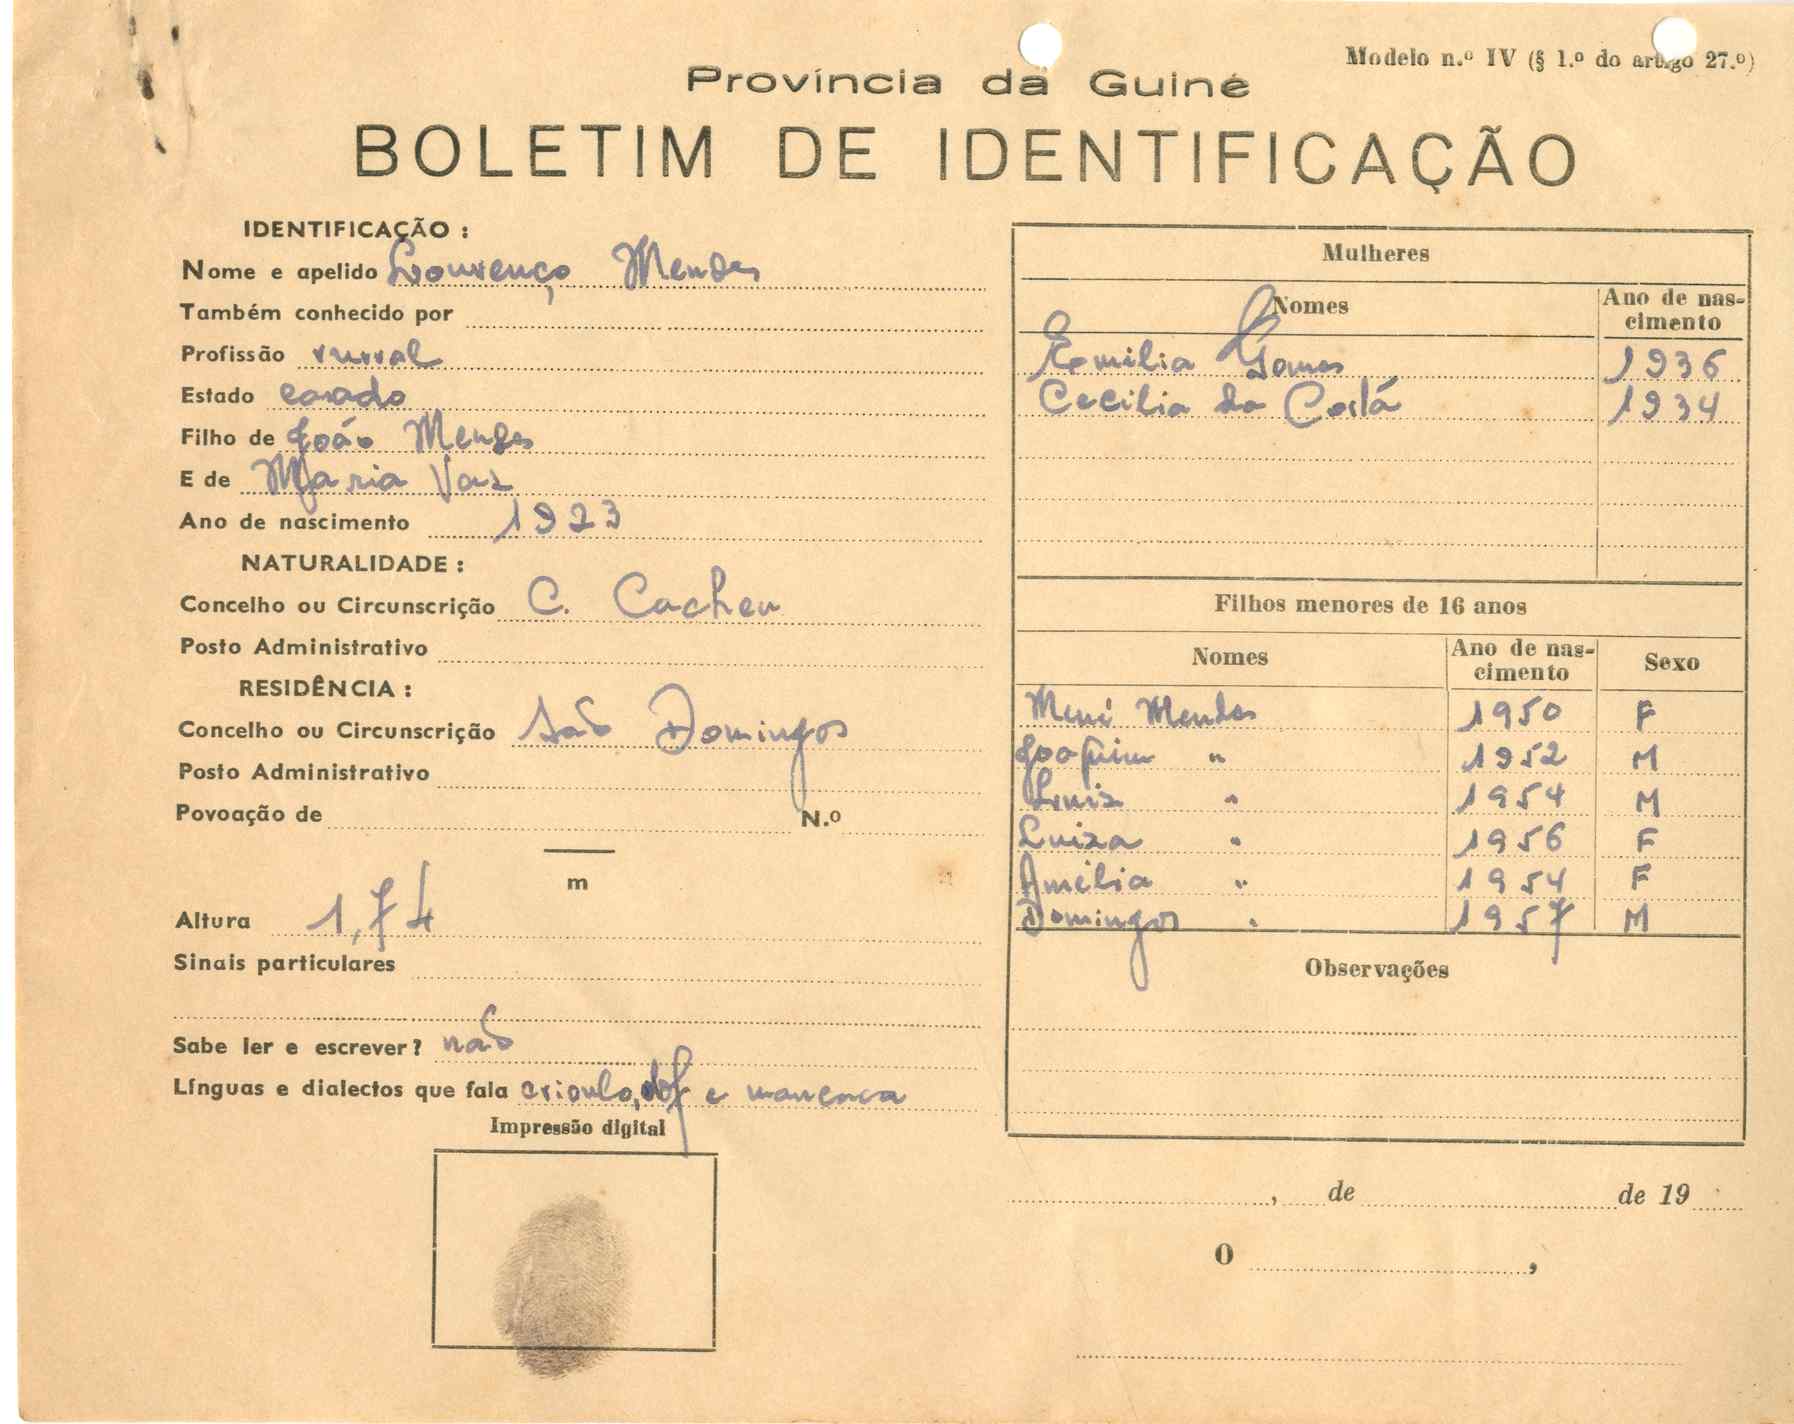 Modelo n.º IV (§ 1.º do artigo 27.º)
Província da Guiné
BOLETIM DE IDENTIFICAÇÃO
IDENTIFICAÇÃO :
Nome e apelido Lourenço Mendes
Também conhecido por
Profissão rural
Estado casado
Filho de João Mendes
E de Maria Vaz
Ano de nascimento 1923
NATURALIDADE :
Concelho ou Circunscrição C. Cacheu
Posto Administrativo
RESIDÊNCIA :
Concelho ou Circunscrição São Domingos
Posto Administrativo
Povoação de N.º
m
Altura 1,74
Sinais particulares
Sabe ler e escrever? não
Línguas e dialectos que fala crioulo, e mancanca
Impressão digital
Mulheres
Nomes Ano de nas-
cimento
Emilia Gomes 1936
Cecilia da Costa 1934
Filhos menores de 16 anos
Nomes Ano de nas-
cimento Sexo
Mendes 1950 F
Joaquim " 1952 M
Luiz " 1954 M
Luiza " 1956 F
Amélia " 1954 F
Domingos " 1957 M
Observações
, de de 19
O ,